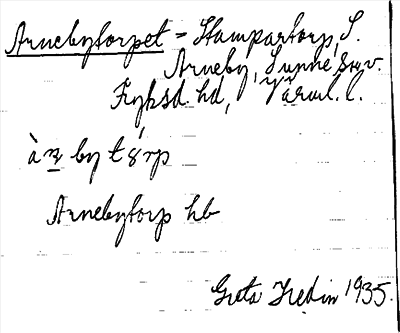 Arnebytorpet = Stampartorp, S.
Arneby, Sunne sn v.
Fryksd. hd, Värml. l.
àrn by tórp
Arnebytorp hb
Greta Hedin 1935.